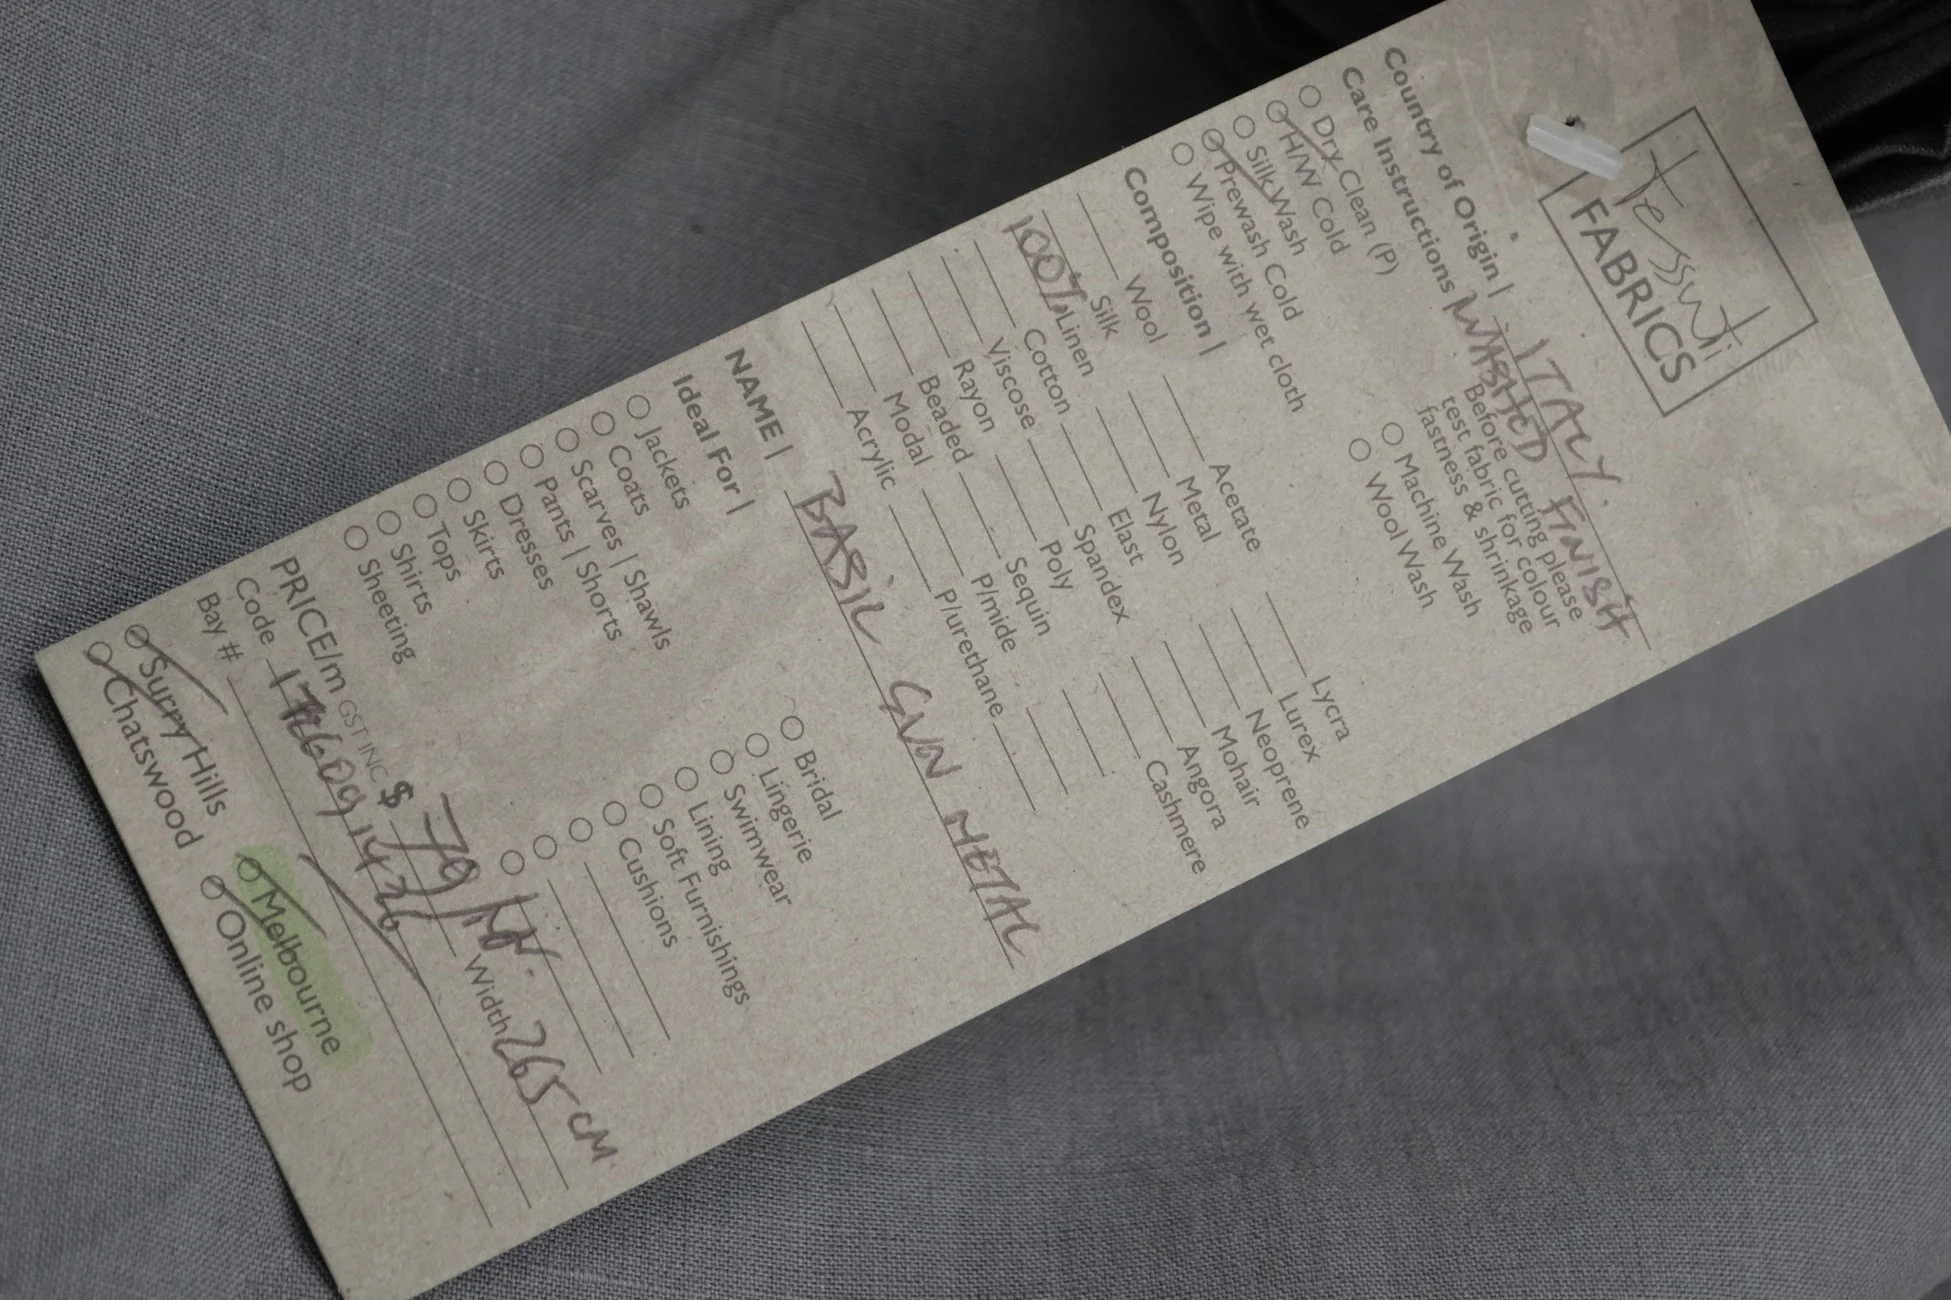 Tessuti
FABRICS
Country of Origin | ITALY.
Care Instructions | WASHED FINISH
Dry Clean (P)
HW Cold
Silk Wash
Prewash Cold
Wipe with wet cloth
Before cutting please
test fabric for colour
fastness & shrinkage
Machine Wash
Wool Wash
Composition |
Wool
Silk
100% Linen
Cotton
Viscose
Rayon
Beaded
Modal
Acrylic
Acetate
Metal
Nylon
Elast
Spandex
Poly
Sequin
P/mide
P/urethane
Lycra
Lurex
Neoprene
Mohair
Angora
Cashmere
NAME | BASIC GUN METAL
Ideal For |
Jackets
Coats
Scarves | Shawls
Pants | Shorts
Dresses
Skirts
Tops
Shirts
Sheeting
Bridal
Lingerie
Swimwear
Lining
Soft Furnishings
Cushions
PRICE/m GST INC $ 79/ Width 265 cM.
Code
Bay #
Surry Hills
Chatswood
Melbourne
Online shop